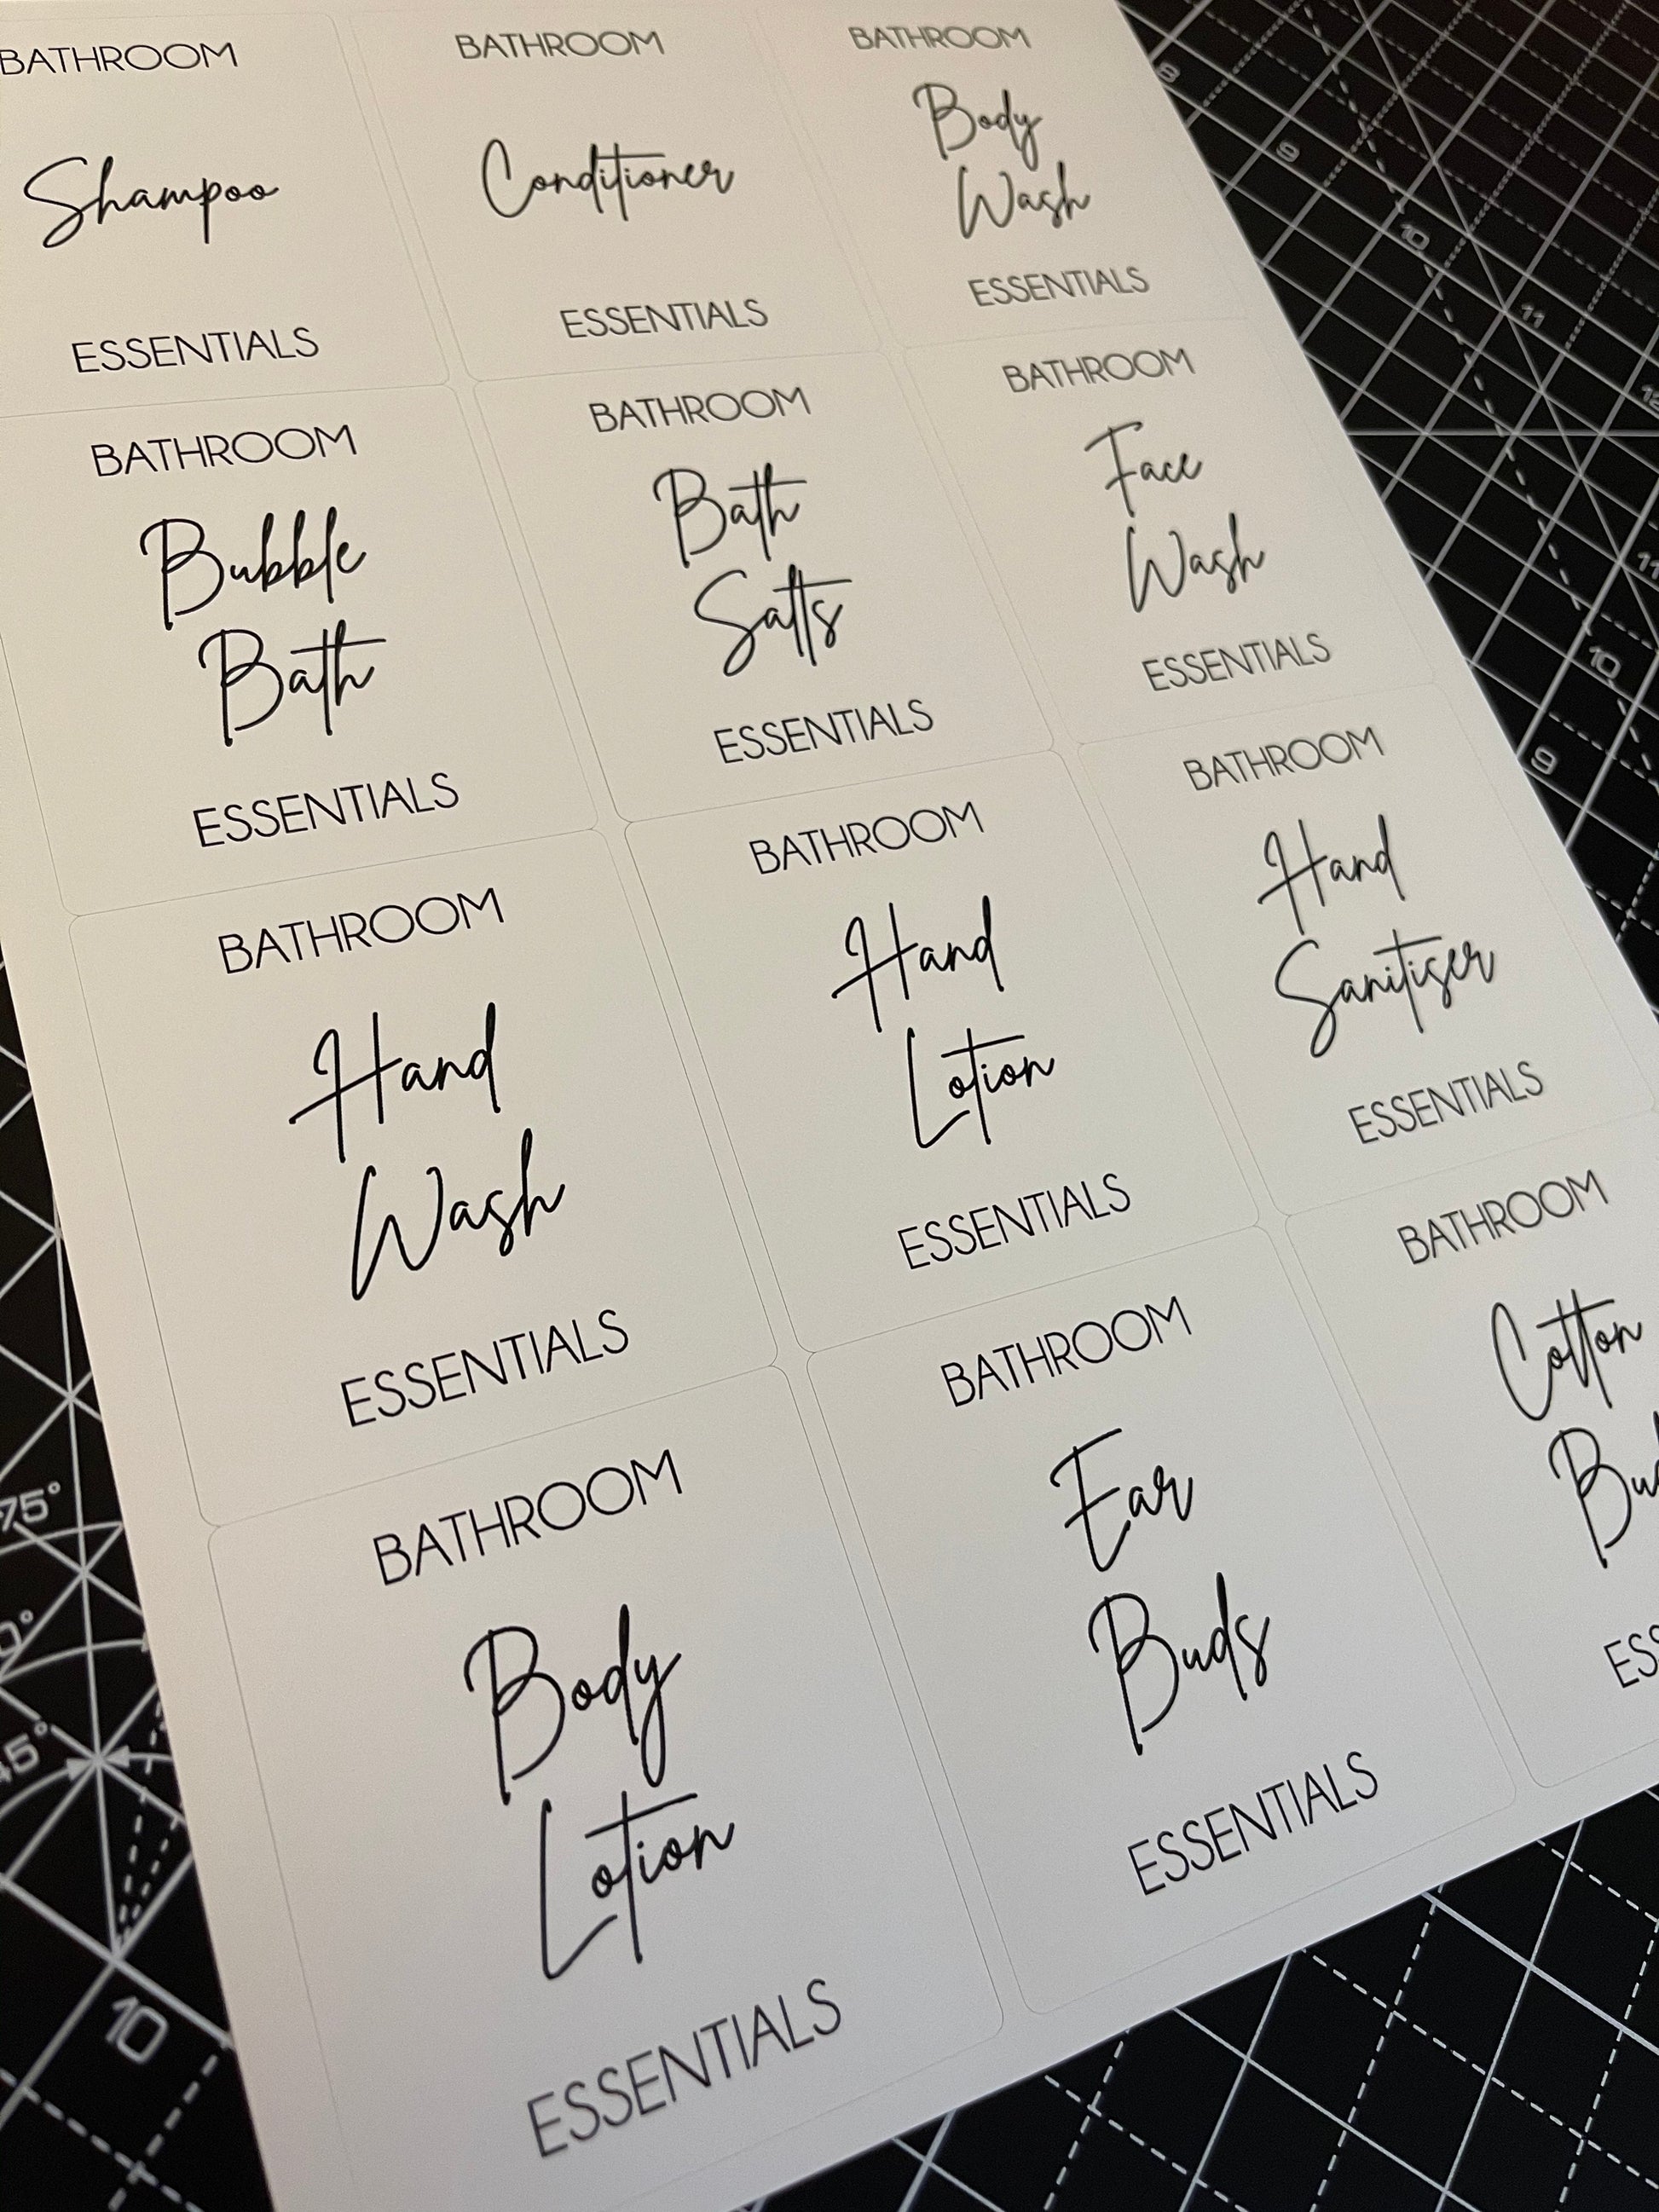 BATHROOM
Shampoo
ESSENTIALS
BATHROOM
Conditioner
ESSENTIALS
BATHROOM
Body
Wash
ESSENTIALS
BATHROOM
Bubble
Bath
ESSENTIALS
BATHROOM
Bath
Salts
ESSENTIALS
BATHROOM
Face
Wash
ESSENTIALS
BATHROOM
Hand
Wash
ESSENTIALS
BATHROOM
Hand
Lotion
ESSENTIALS
BATHROOM
Hand
Sanitiser
ESSENTIALS
BATHROOM
Body
Lotion
ESSENTIALS
BATHROOM
Ear
Buds
ESSENTIALS
BATHROOM
Cotton
8
9
10
11
11
10
9
75°
10